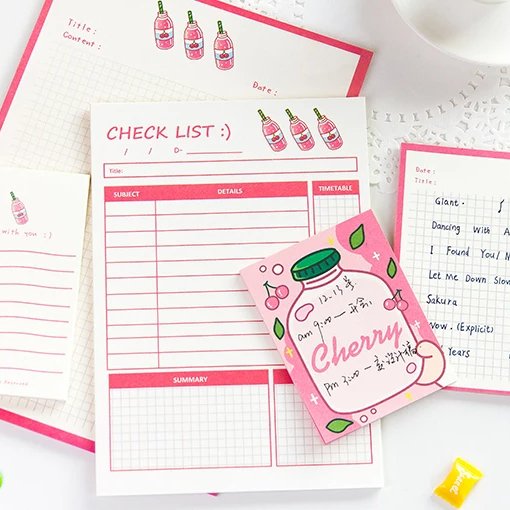 Title:
Content:
Date:
CHECK LIST :)
/ / D-
Title:
SUBJECT DETAILS TIMETABLE
SUMMARY
with you :)
12.13
am 9:00 — 开会
Cherry
pm 3:00 —
Date:
Title:
Giant.
Dancing With A
I Found You/
Let Me Down Slow
Sakura
Now. (Explicit)
Years